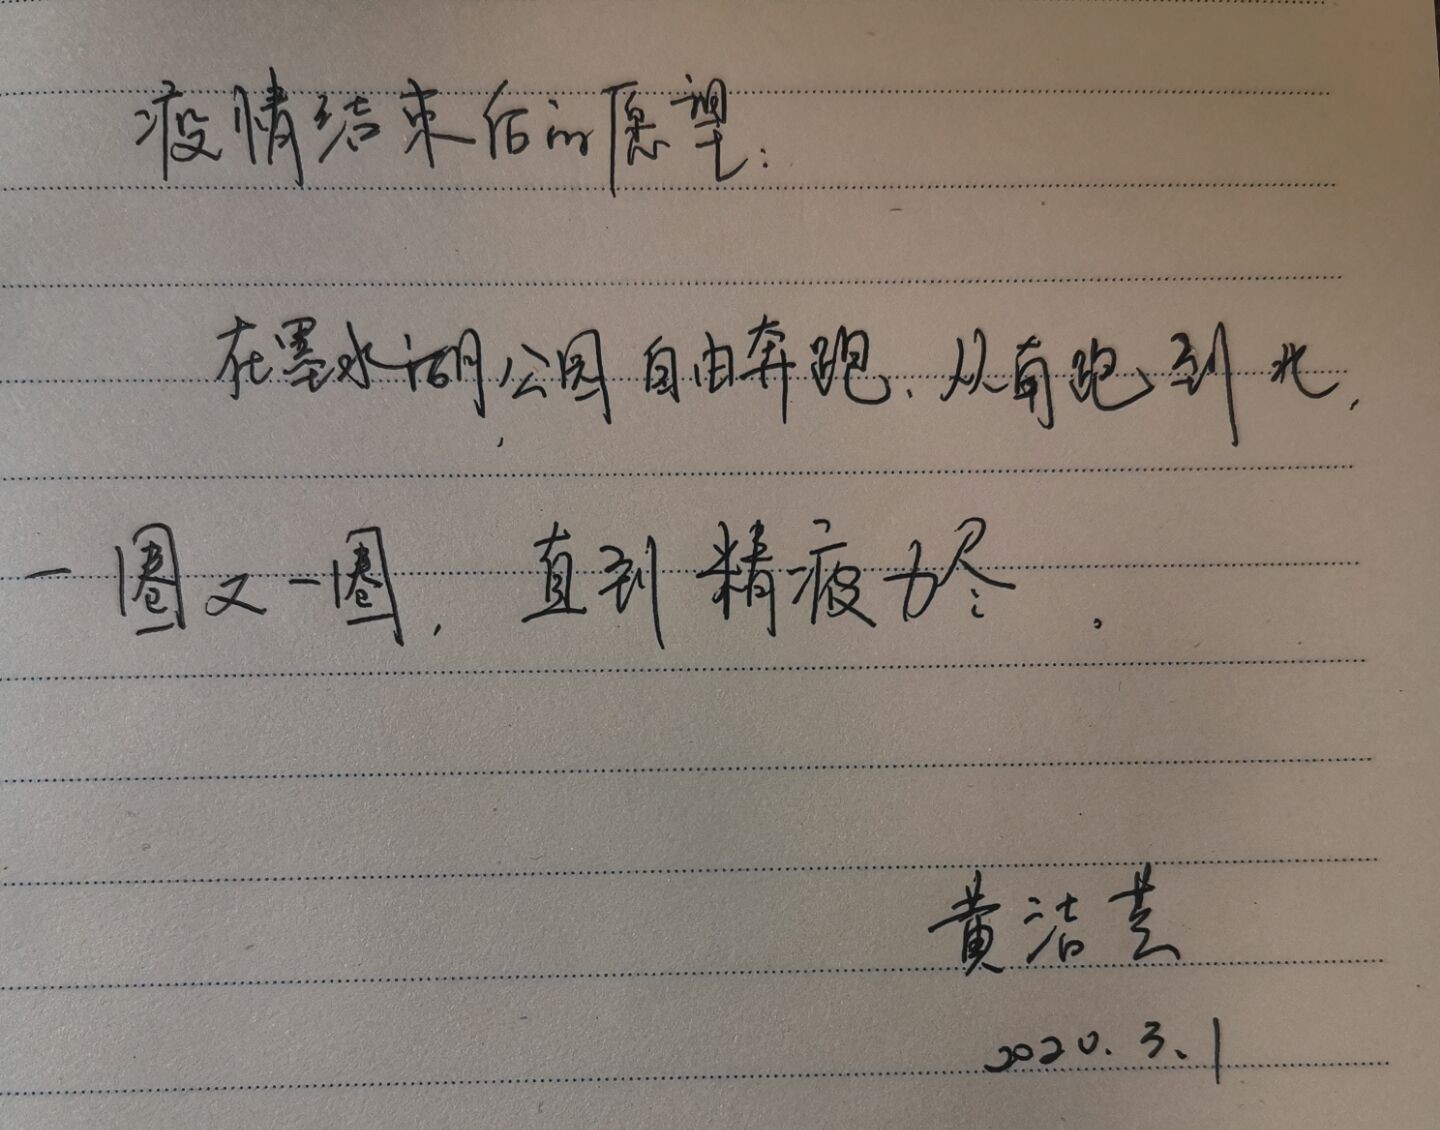 疫情结束后的愿望：
在墨水湖公园自由奔跑、从南跑到北，
一圈又一圈，直到精疲力尽。
黄洁芸
2020.3.1